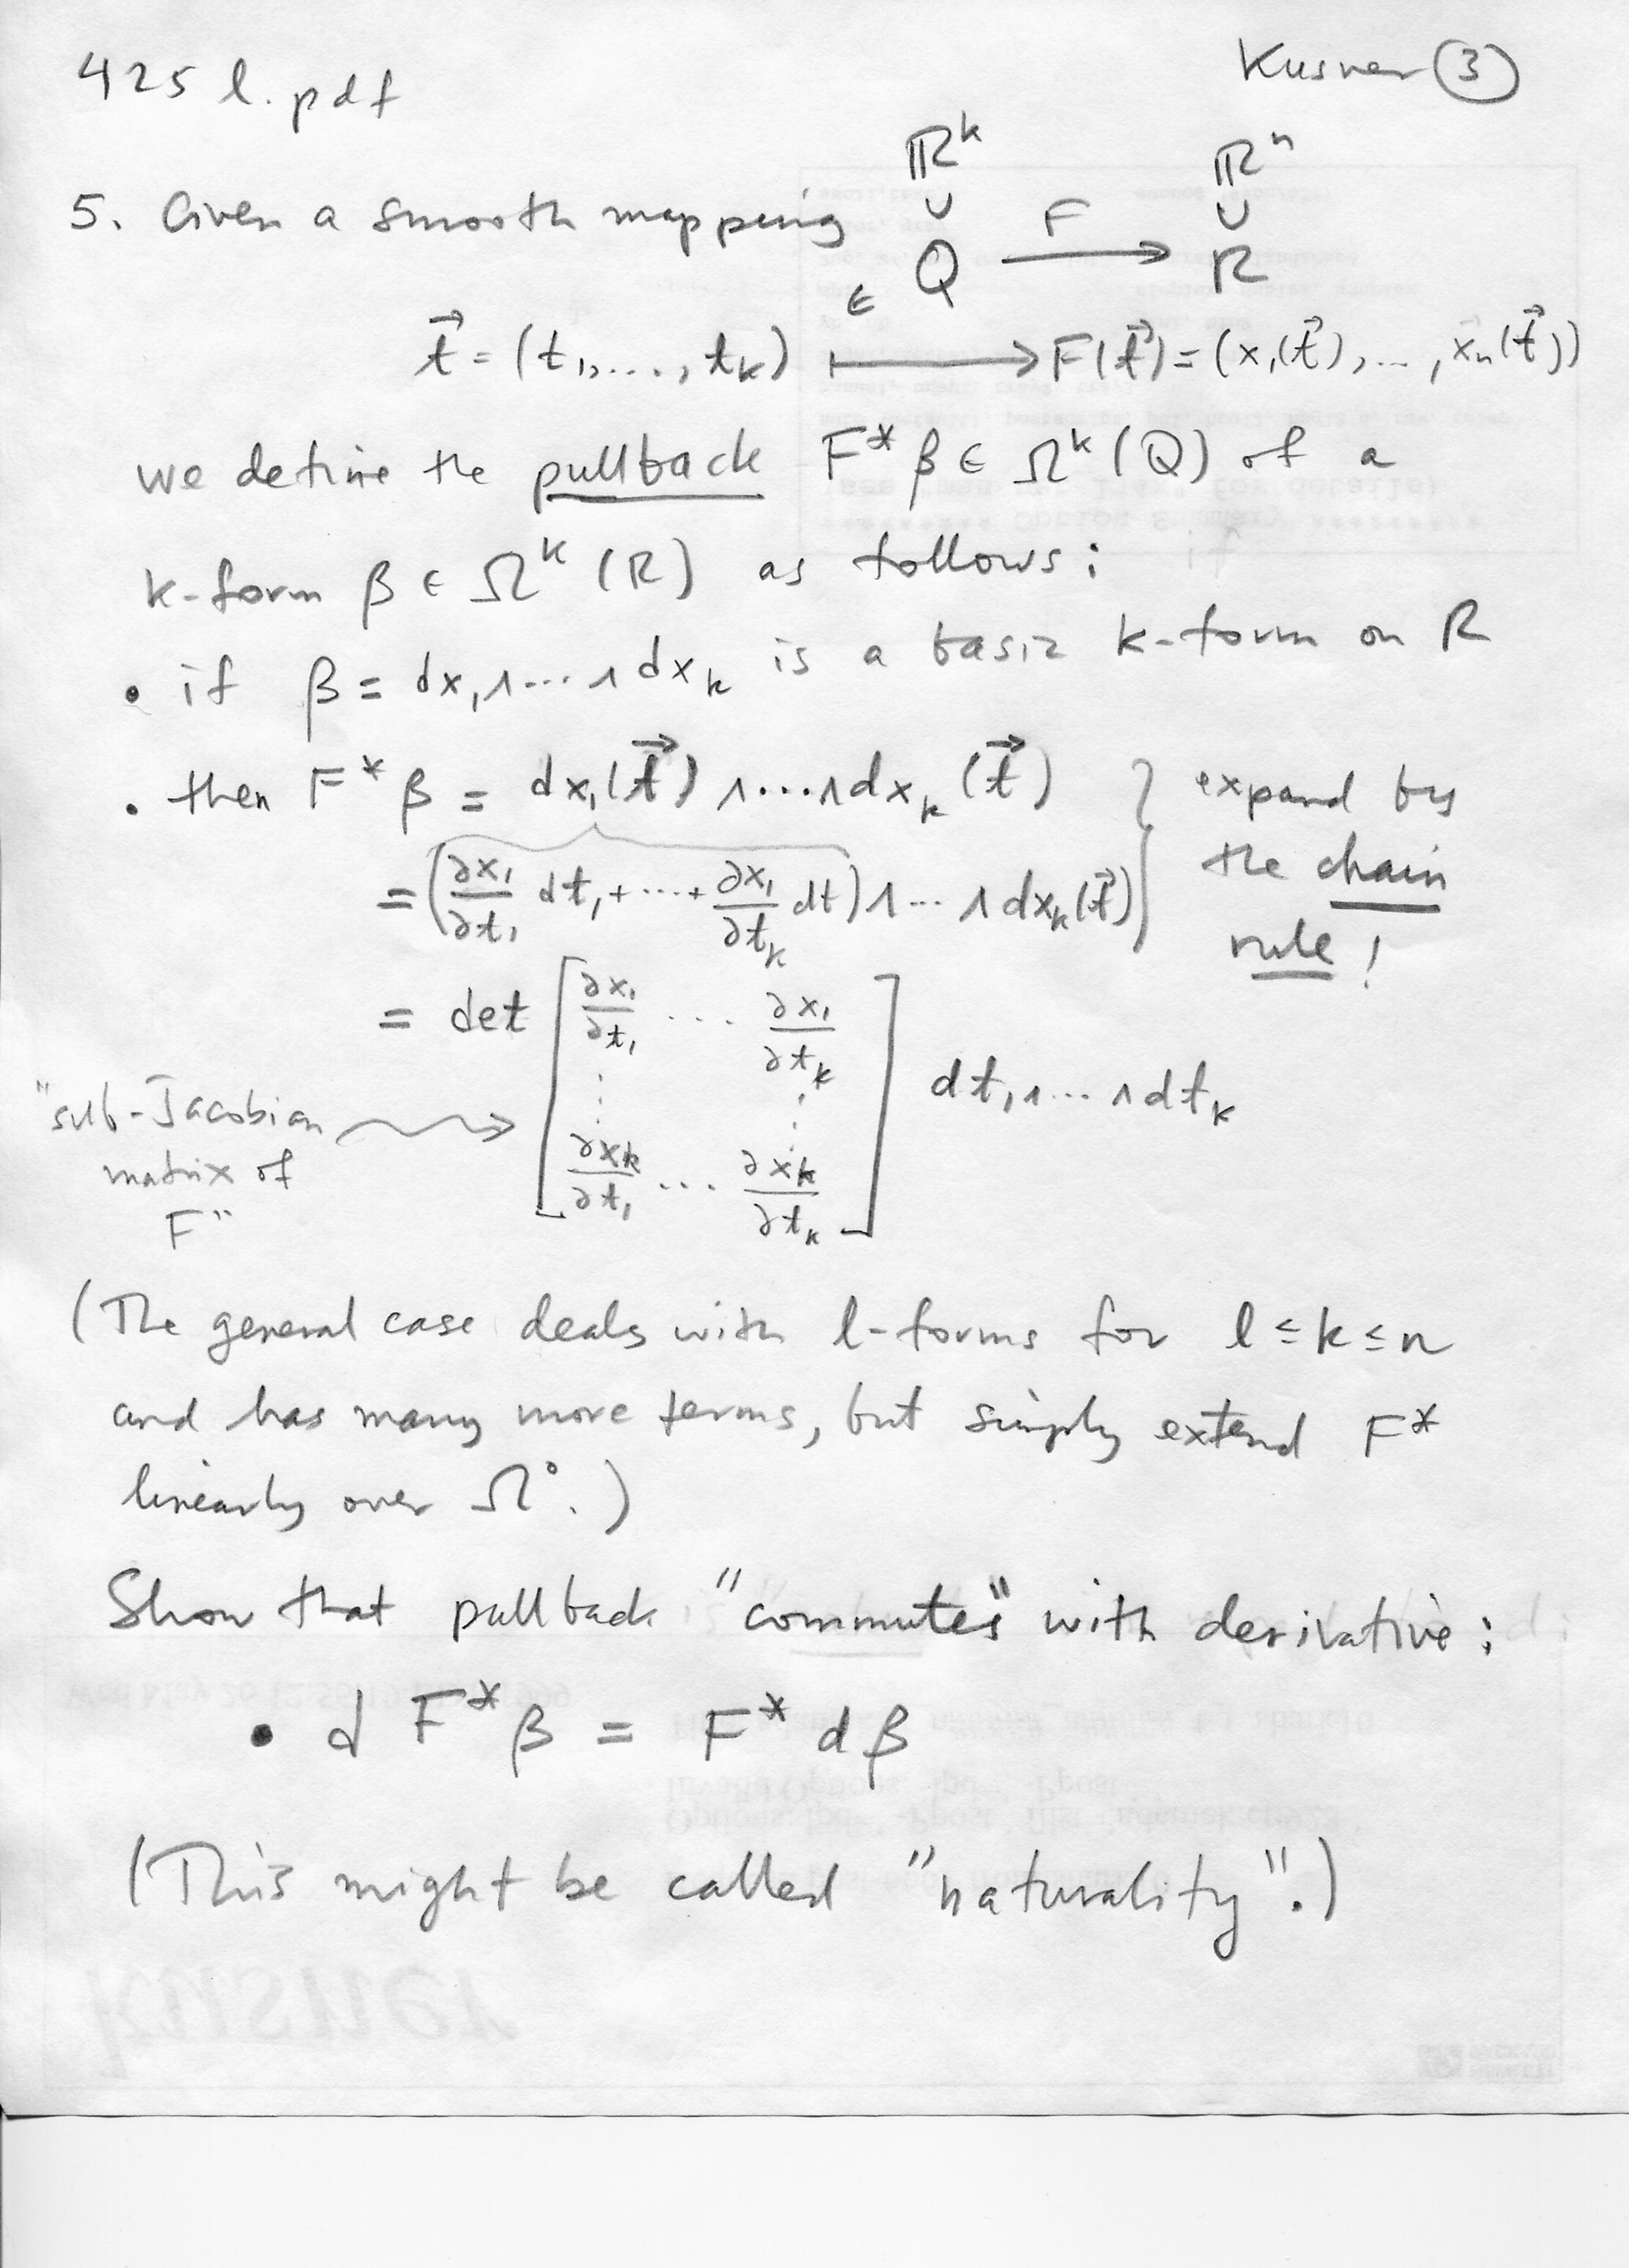 425 l.pdf
Kusner ③
ℝᵏ ℝⁿ
∪ F ∪
5. Given a smooth mapping Q ⟶ R
∈
t⃗ = (t₁, ..., tₖ) ⟼ F(t⃗) = (x₁(t⃗), ..., xₙ(t⃗))
we define the pullback F*β ∈ Ωᵏ(Q) of a
k-form β ∈ Ωᵏ(R) as follows:
• if β = dx₁∧...∧dxₖ is a basic k-form on R
• then F*β = dx₁(t⃗)∧...∧dxₖ(t⃗) } expand by
= (∂x₁/∂t₁ dt₁ + ... + ∂x₁/∂tₖ dt)∧...∧dxₖ(t⃗) the chain
rule!
= det [∂x₁/∂t₁ ... ∂x₁/∂tₖ
⋮ ⋮ dt₁∧...∧dtₖ
∂xₖ/∂t₁ ... ∂xₖ/∂tₖ]
"sub-Jacobian
matrix of
F"
(The general case deals with l-forms for l ≤ k ≤ n
and has many more terms, but simply extend F*
linearly over Ω⁰.)
Show that pullback "commutes" with derivative:
• d F*β = F* dβ
(This might be called "naturality".)